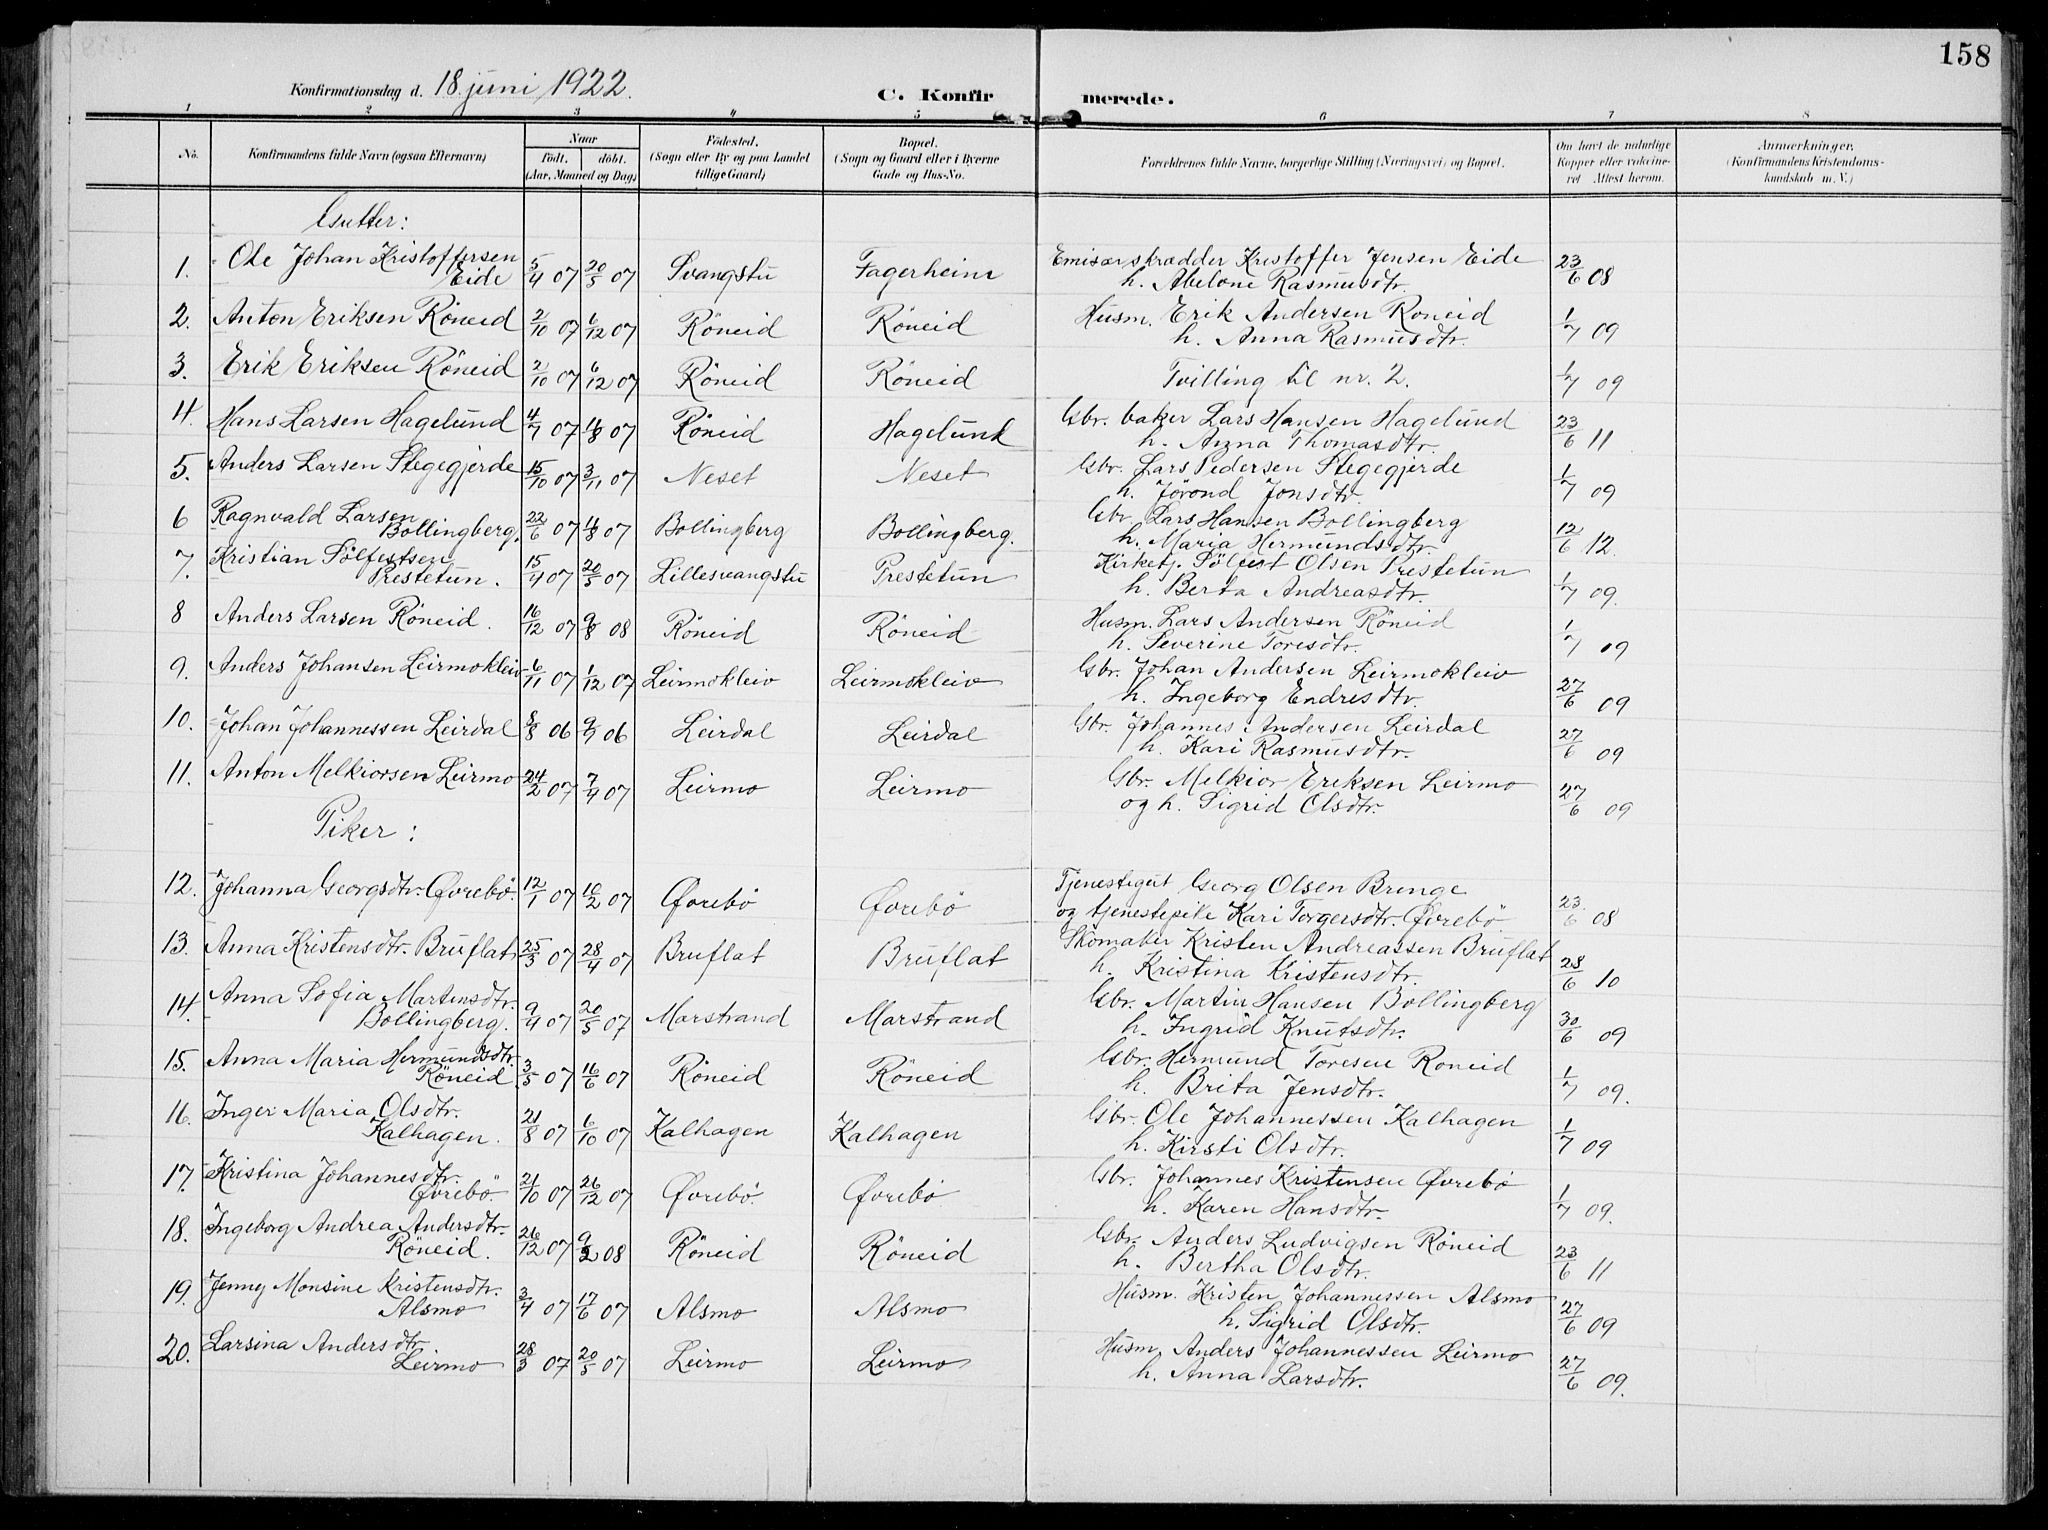 158
Konfirmationsdag d. 18. juni 1922.
C. Konfirmerede.
1 2 3 4 5 6 7 8
No. Konfirmandens fulde Navn (ogsaa Efternavn) Naar født. døbt. (Aar, Maaned og Dag) Fødested. (Sogn eller By og paa Landet tillige Gaard) Bopæl. (Sogn og Gaard eller i Byerne Gade og Hus-No. Forældrenes fulde Navne, borgerlige Stilling (Næringsvei) og Bopæl. Om havt de naturlige Kopper eller vakcineret Attest herom. Anmærkninger. (Konfirmandens Kristendomskundskab m. V.)
Gutter:
1. Ole Johan Kristoffersen Eide 5/4 07 20/5 07 Svangstu Fagerheim Emisær skrædder Kristoffer Jensen Eide
h. Abelone Rasmusdtr. 23/6 08
2. Anton Eriksen Röneid 2/10 07 6/12 07 Röneid Röneid Husm. Erik Andersen Roneid
h. Anna Rasmusdtr. 1/7 09
3. Erik Eriksen Röneid 2/10 07 6/12 07 Röneid Röneid Tvilling til nr. 2. 1/7 09
4. Hans Larsen Hagelund 4/7 07 4/8 07 Röneid Hagelund Gbr. baker Lars Hansen Hagelund
h. Anna Thomasdtr. 23/6 11
5. Anders Larsen Stegegjerde 15/10 07 3/11 07 Neset Neset Gbr. Lars Pedersen Stegegjerde
h. Jörond Jonsdtr. 1/7 09
6 Ragnvald Larsen Bollingberg. 22/6 07 4/8 07 Bollingberg Bollingberg. Gbr. Lars Hansen Bollingberg
h. Maria Hermundsdtr. 12/6 12.
7. Kristian Sölfestsen Prestetun. 15/4 07 20/5 07 Lillesvangstu Prestetun Kirketj. Sölfest Olsen Prestetun
h. Berta Andreasdtr. 1/7 09.
8 Anders Larsen Röneid. 16/12 07 9/8 08 Röneid Röneid Husm. Lars Andersen Röneid
h. Severine Toresdtr. 1/7 09
9. Anders Johansen Leirmokleiv 6/11 07 1/12 07 Leirmokleiv Leirmokleiv Gbr. Johan Andersen Leirmokleiv
h. Ingeborg Endresdtr. 27/6 09
10. Johan Johannessen Leirdal 8/8 06 9/9 06 Leirdal Leirdal Gbr. Johannes Andersen Leirdal
h. Kari Rasmusdtr. 27/6 09
11. Anton Melkiorsen Leirmo 24/2 07 7/4 07 Leirmo Leirmo Gbr. Melkior Eriksen Leirmo
og h. Sigrid Olsdtr. 27/6 09
Piker:
12. Johanna Georgsdtr. Øvrebö. 12/1 07 10/2 07 Øvrebö Øvrebö Tjenestegut Georg Olsen Brenge
og tjenestepike Kari Torgersdtr. Øvrebö 23/6 08
13. Anna Kristensdtr. Bruflat 25/3 07 28/4 07 Bruflat Bruflat Skomaker Kristen Andreassen Bruflat
h. Kristina Kristensdtr. 28/6 10
14. Anna Sofia Martinsdtr. Bollingberg. 9/4 07 20/5 07 Marstrand Marstrand Gbr. Martin Hansen Bollingberg
h. Ingrid Knutsdtr. 30/6 09
15. Anna Maria Hermundsdtr. Röneid 3/5 07 16/6 07 Röneid Röneid Gbr. Hermund Toresen Roneid
h. Brita Jensdtr. 1/7 09.
16. Inger Maria Olsdtr. Kalhagen. 21/8 07 6/10 07 Kalhagen Kalhagen Gbr. Ole Johannessen Kalhagen
h. Kirsti Olsdtr. 1/7 09
17. Kristina Johannesdtr. Øvrebö. 21/10 07 26/12 07 Øvrebö. Øvrebö Gbr. Johannes Kristensen Øvrebö
h. Karen Hansdtr. 1/7 09.
18. Ingeborg Andrea Andersdtr. Röneid. 26/12 07 9/2 08 Röneid Röneid Gbr. Anders Ludvigsen Röneid
h. Bertha Olsdtr. 23/6 11
19. Jenny Monsine Kristensdtr. Alsmo 3/4 07 17/6 07 Alsmo Alsmo Husm. Kristen Johannessen Alsmo
h. Sigrid Olsdtr. 27/6 09
20. Larsina Andersdtr. Leirmo 28/3 07 20/5 07 Leirmo Leirmo Husm. Anders Johannessen Leirmo
h. Anna Larsdtr. 27/6 09.